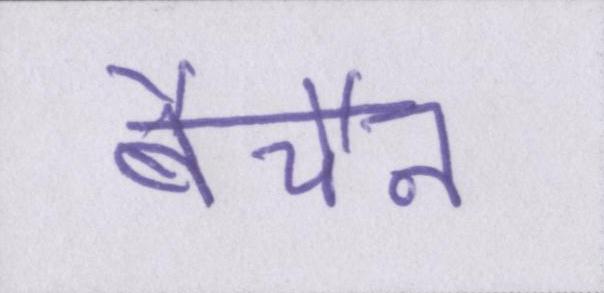 बैचैन